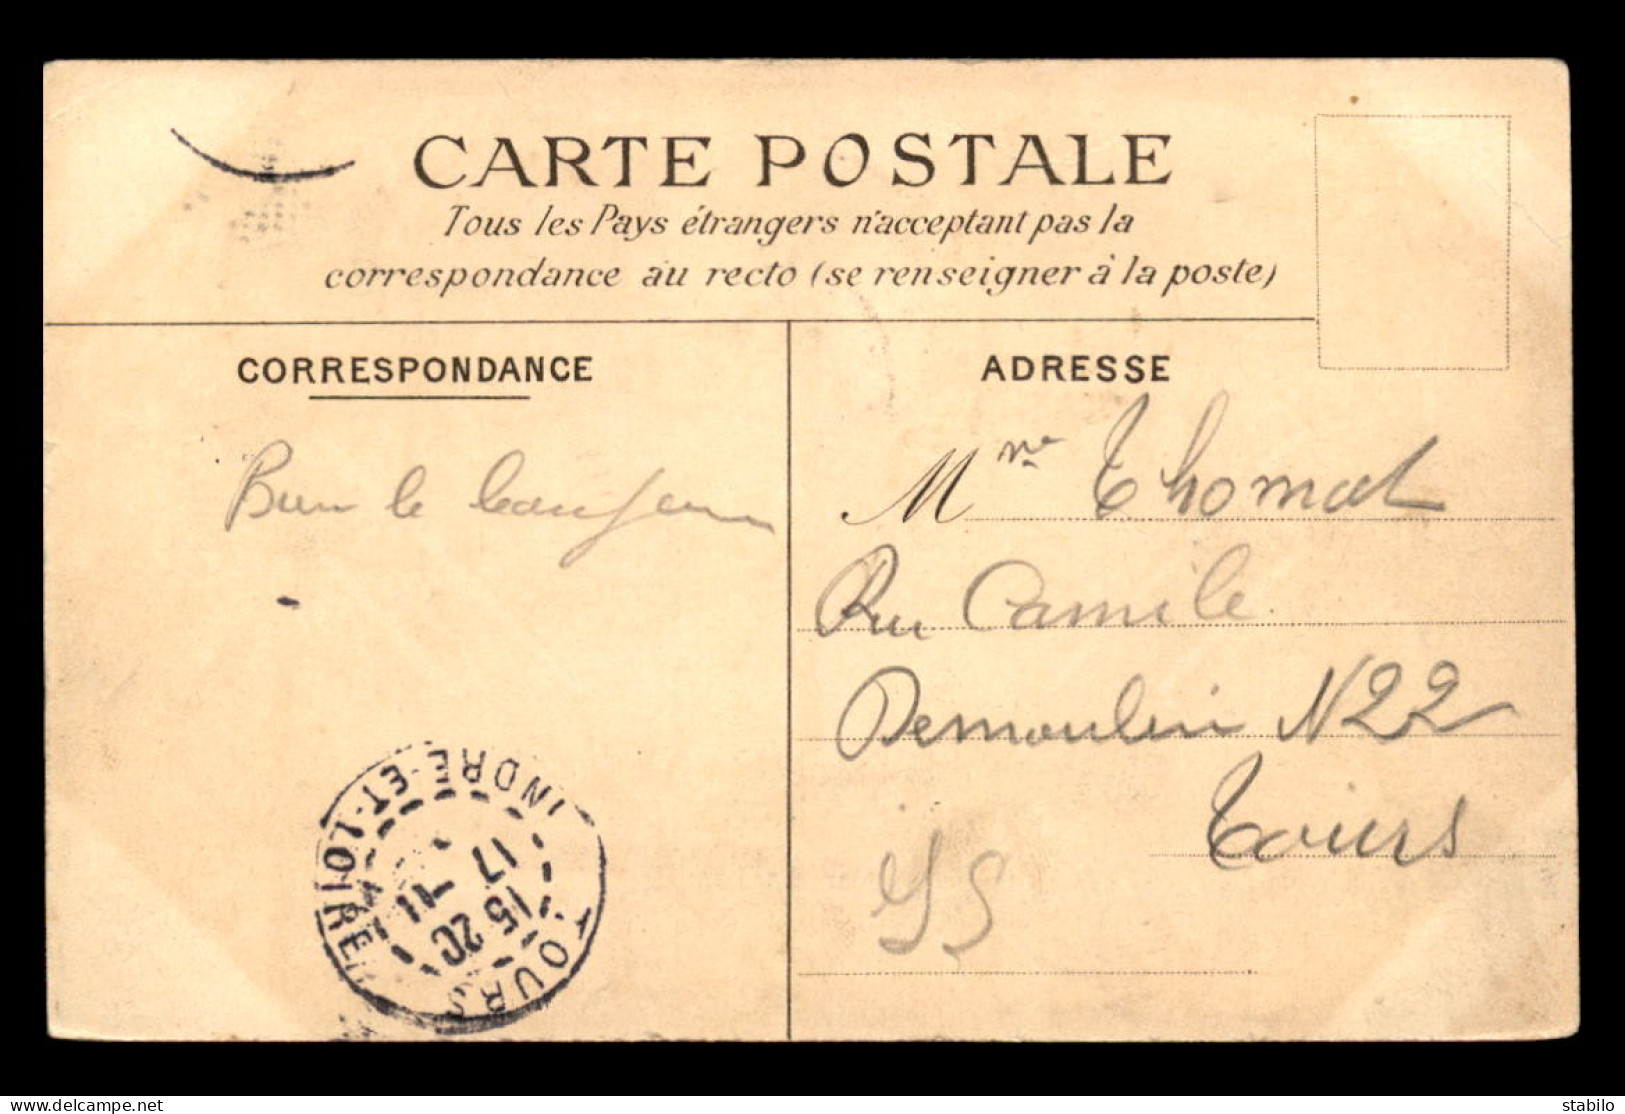 CARTE POSTALE
Tous les Pays étrangers n'acceptant pas la
correspondance au recto (se renseigner à la poste)
CORRESPONDANCE
ADRESSE
Bien le
Mme Thomat
Rue Camile
Demoulin N22
Tours
TOURS
INDRE-ET-LOIRE
17
15 20
11
stabilo